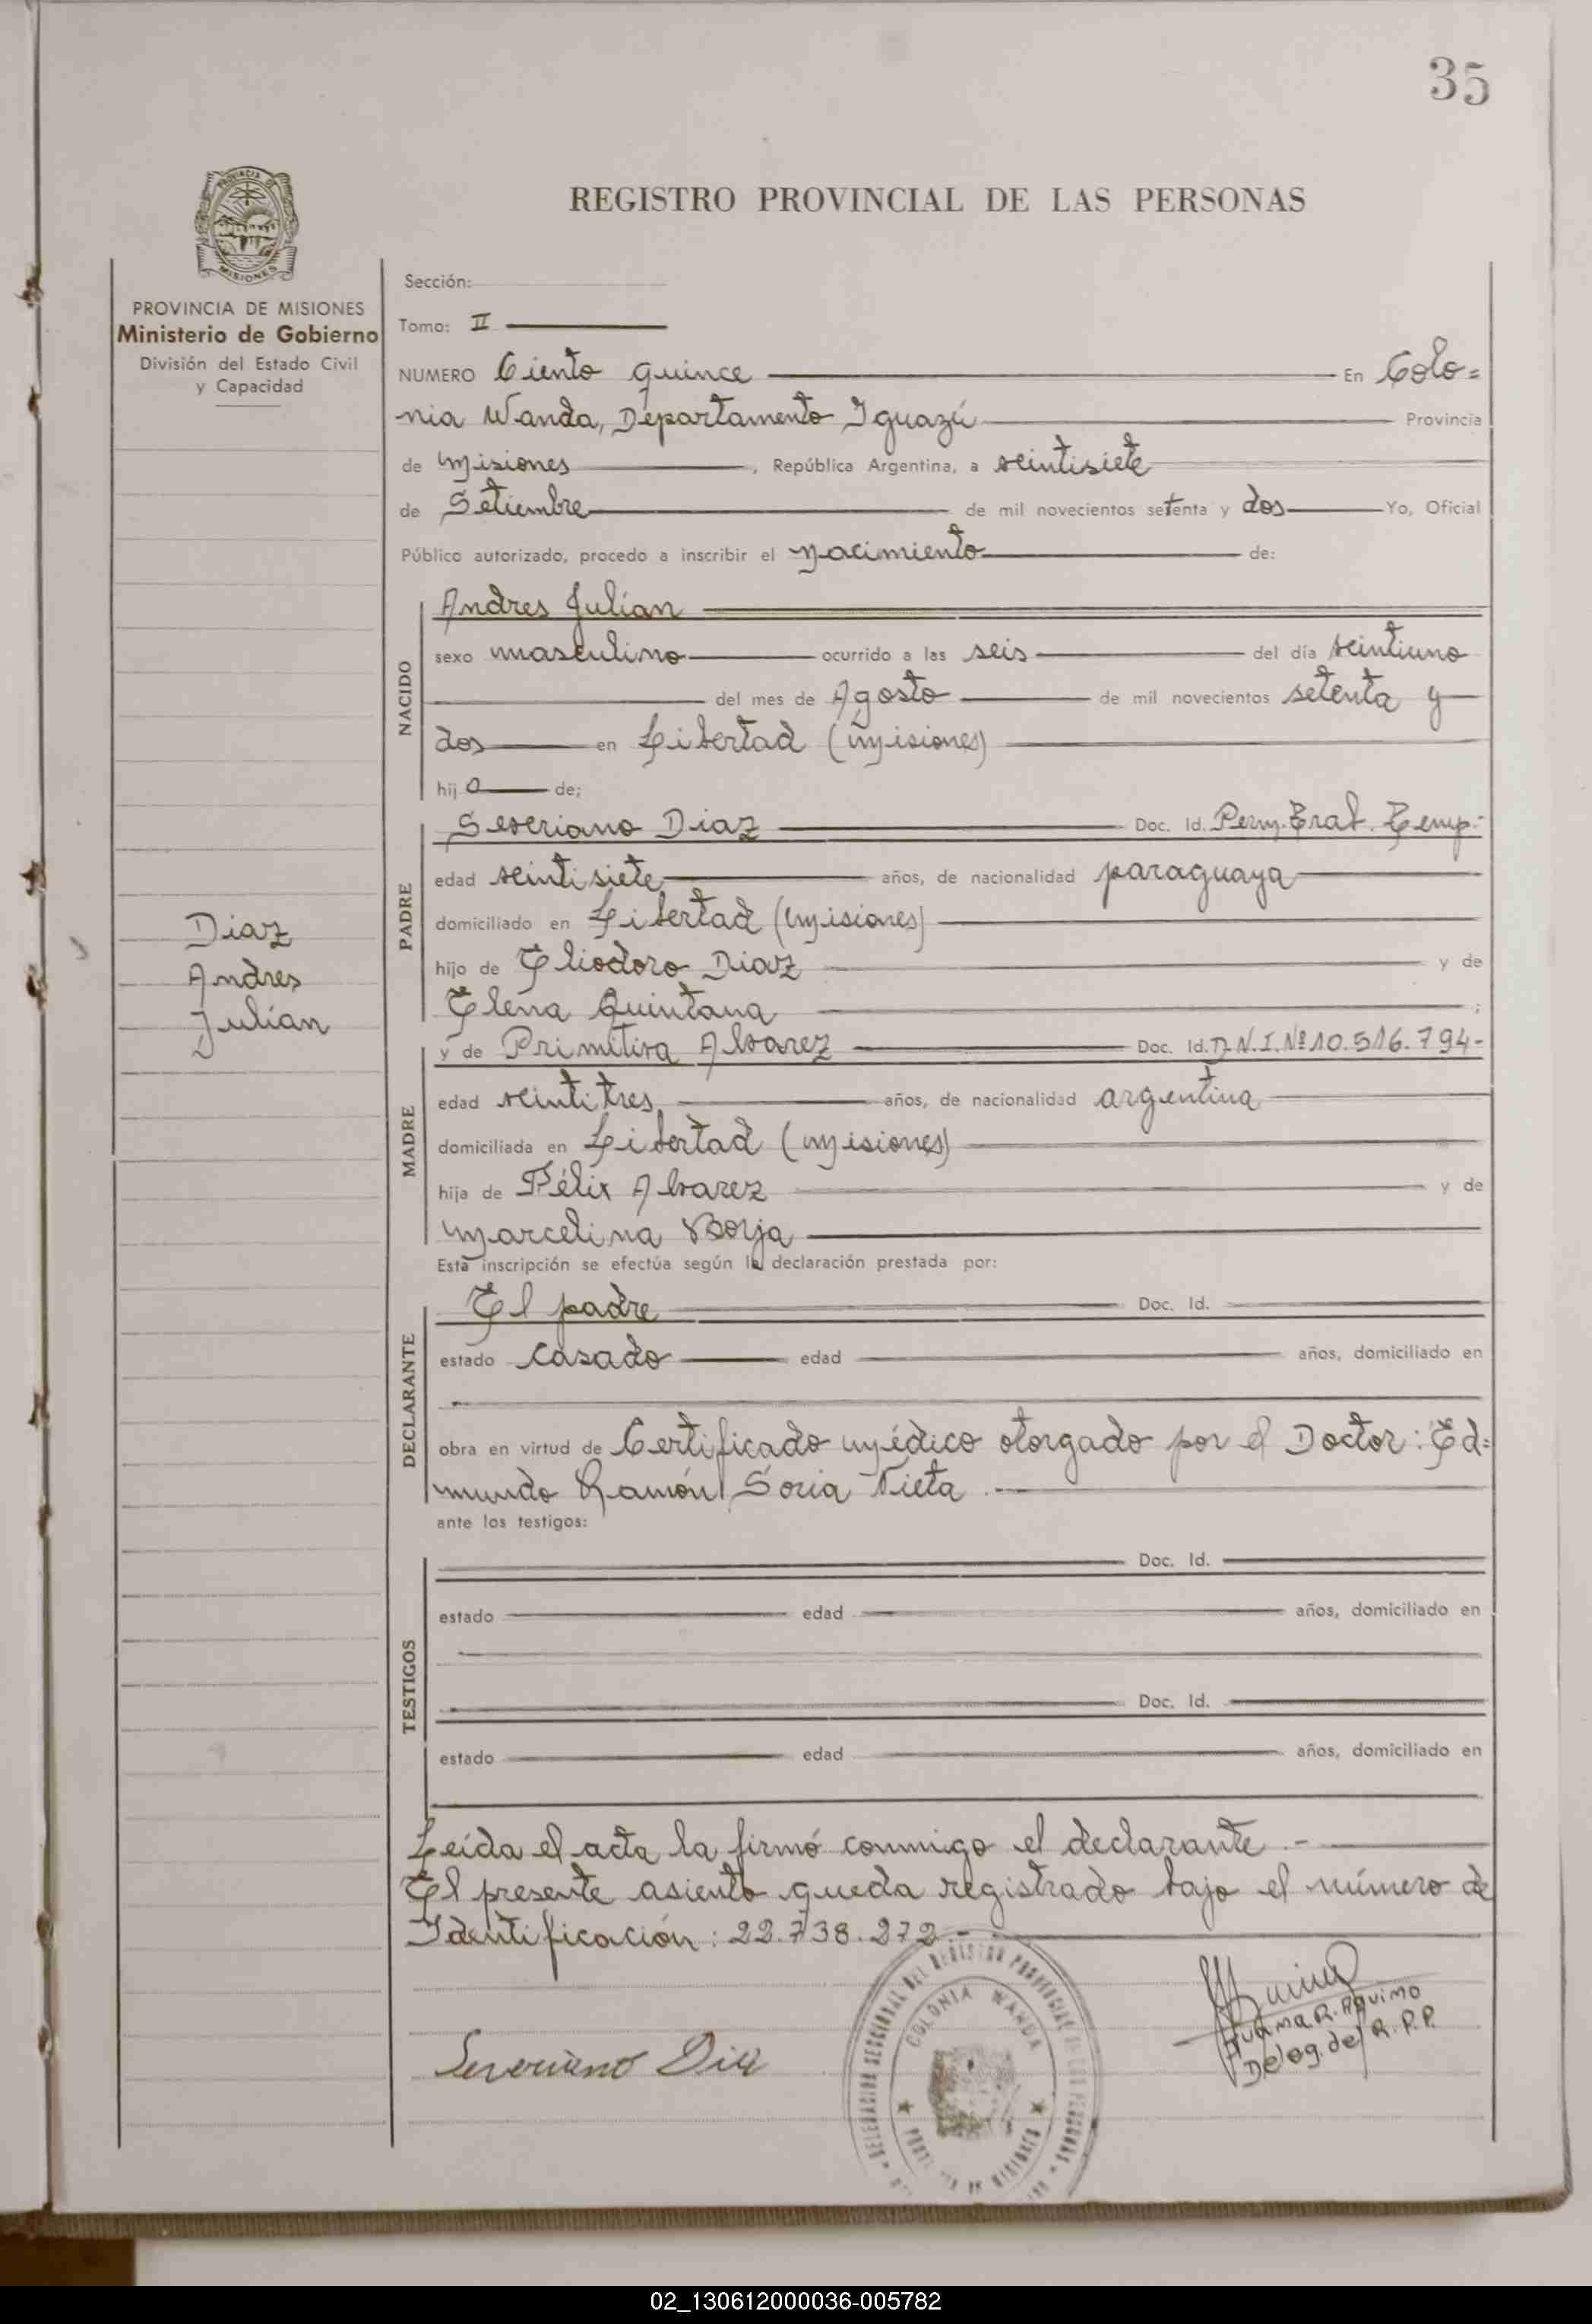 35
PROVINCIA DE
MISIONES
REGISTRO PROVINCIAL DE LAS PERSONAS
PROVINCIA DE MISIONES
Ministerio de Gobierno
División del Estado Civil
y Capacidad
Diaz
Andres
Julián
Sección:
Tomo: II
NUMERO Ciento quince En Colo=
nia Wanda, Departamento Iguazú Provincia
de Misiones, República Argentina, a veintisiete
de Setiembre de mil novecientos setenta y dos Yo, Oficial
Público autorizado, procedo a inscribir el Nacimiento de:
NACIDO
Andres Julián
sexo masculino ocurrido a las seis del día veintiuno
del mes de Agosto de mil novecientos setenta y
dos en Libertad (Misiones)
hijo de;
PADRE
Severiano Diaz Doc. Id. Perm. Trab. Temp.-
edad veintisiete años, de nacionalidad paraguaya
domiciliado en Libertad (Misiones)
hijo de Eliodoro Diaz y de
Elena Quintana ;
MADRE
y de Primitiva Alvarez Doc. Id. D.N.I. Nº 10.516.794-
edad veintitres años, de nacionalidad argentina
domiciliada en Libertad (Misiones)
hija de Félix Alvarez y de
Marcelina Borja
Esta inscripción se efectúa según la declaración prestada por:
DECLARANTE
El padre Doc. Id.
estado casado edad años, domiciliado en
obra en virtud de Certificado médico otorgado por el Doctor: Ed=
mundo Ramón Soria Vieta.-
ante los testigos:
TESTIGOS
Doc. Id.
estado edad años, domiciliado en
Doc. Id.
estado edad años, domiciliado en
Leída el acta la firmó conmigo el declarante.-
El presente asiento queda registrado bajo el número de
Identificación: 22.738.272-
Severiano Diaz
DELEGACION SECCIONAL DEL REGISTRO PROVINCIAL DE LAS PERSONAS
COLONIA WANDA
R. Aquimo
Deleg. del R.P.P.
02_130612000036-005782